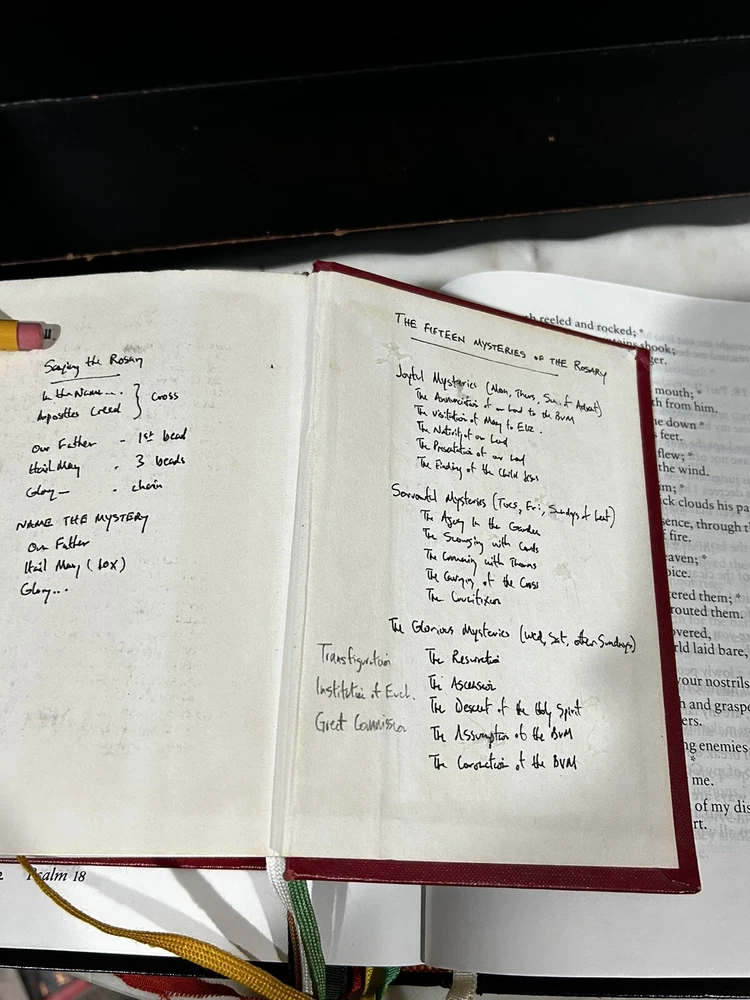 11.
Saying the Rosary
In the Name... } Cross
Apostles Creed
Our Father - 1st bead
Hail Mary - 3 beads
Glory — - chain
NAME THE MYSTERY
Our Father
Hail Mary (10x)
Glory...
THE FIFTEEN MYSTERIES OF THE ROSARY
Joyful Mysteries (Mon, Thurs, Sun. of Advent)
The Annunciation of our Lord to the BVM
The Visitation of Mary to Eliz.
The Nativity of our Lord
The Presentation of our Lord
The Finding of the Child Jesus
Sorrowful Mysteries (Tues, Fri, Sundays of Lent)
The Agony In the Garden
The Scourging with Cords
The Crowning with Thorns
The Carrying of the Cross
The Crucifixion
The Glorious Mysteries (Wed, Sat, other Sundays)
The Resurrection
The Ascension
The Descent of the Holy Spirit
The Assumption of the BVM
The Coronation of the BVM
Transfiguration
Institution of Euch.
Great Commission
reeled and rocked; *
shook;
mouth; *
from him.
down *
feet.
flew; *
the wind.
ick clouds his pa
through t
fire.
eaven; *
oice.
tered them; *
routed them.
overed,
rld laid bare,
your nostrils
and graspe
ers.
ng enemies
*
me.
of my dis
rt.
2 Psalm 18